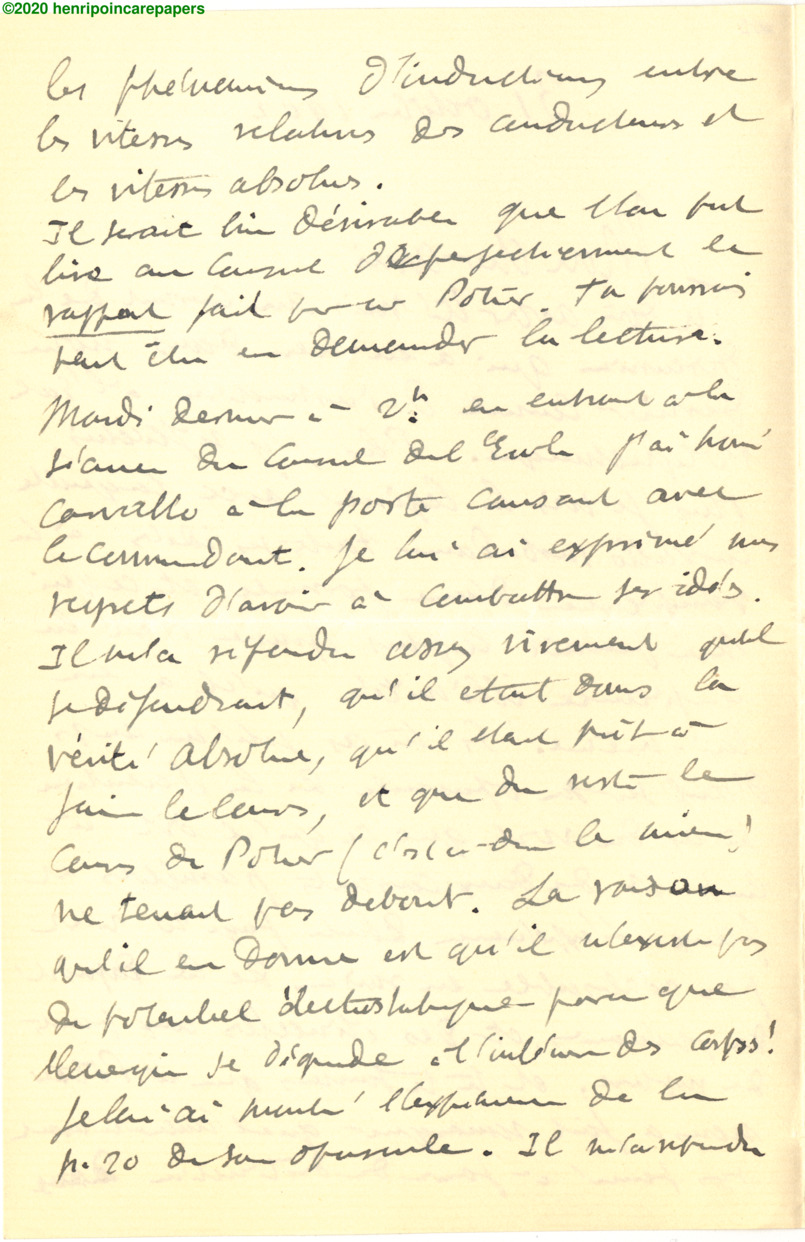 ©2020 henripoincarepapers
les phénomènes d'inductions entre
les vitesses relatives des conducteurs et
les vitesses absolues.
Il serait bien désirable que l'on fut
lire au Conseil de perfectionnement le
rapport fait par Potier. Tu pourrais
peut être en demander la lecture.
Mardi dernier à 2h. en entrant à la
séance du Conseil de l'Ecole j'ai trouvé
Carvallo à la porte causant avec
le Commandant. Je lui ai exprimé mes
regrets d'avoir à combattre ses idées.
Il m'a répondu assez vivement qu'il
se défendrait, qu'il etait dans la
vérité absolue, qu'il etait prêt à
faire le cours, et que du reste le
Cours de Potier (c'est-à-dire le mien)
ne tenait pas debout. La raison
qu'il en donne est qu'il n'existe pas
de potentiel électrostatique parce que
l'énergie se dégrade à l'intérieur des corps!
Je lui ai montré l'expérience de la
p. 20 de son opuscule. Il m'a répondu